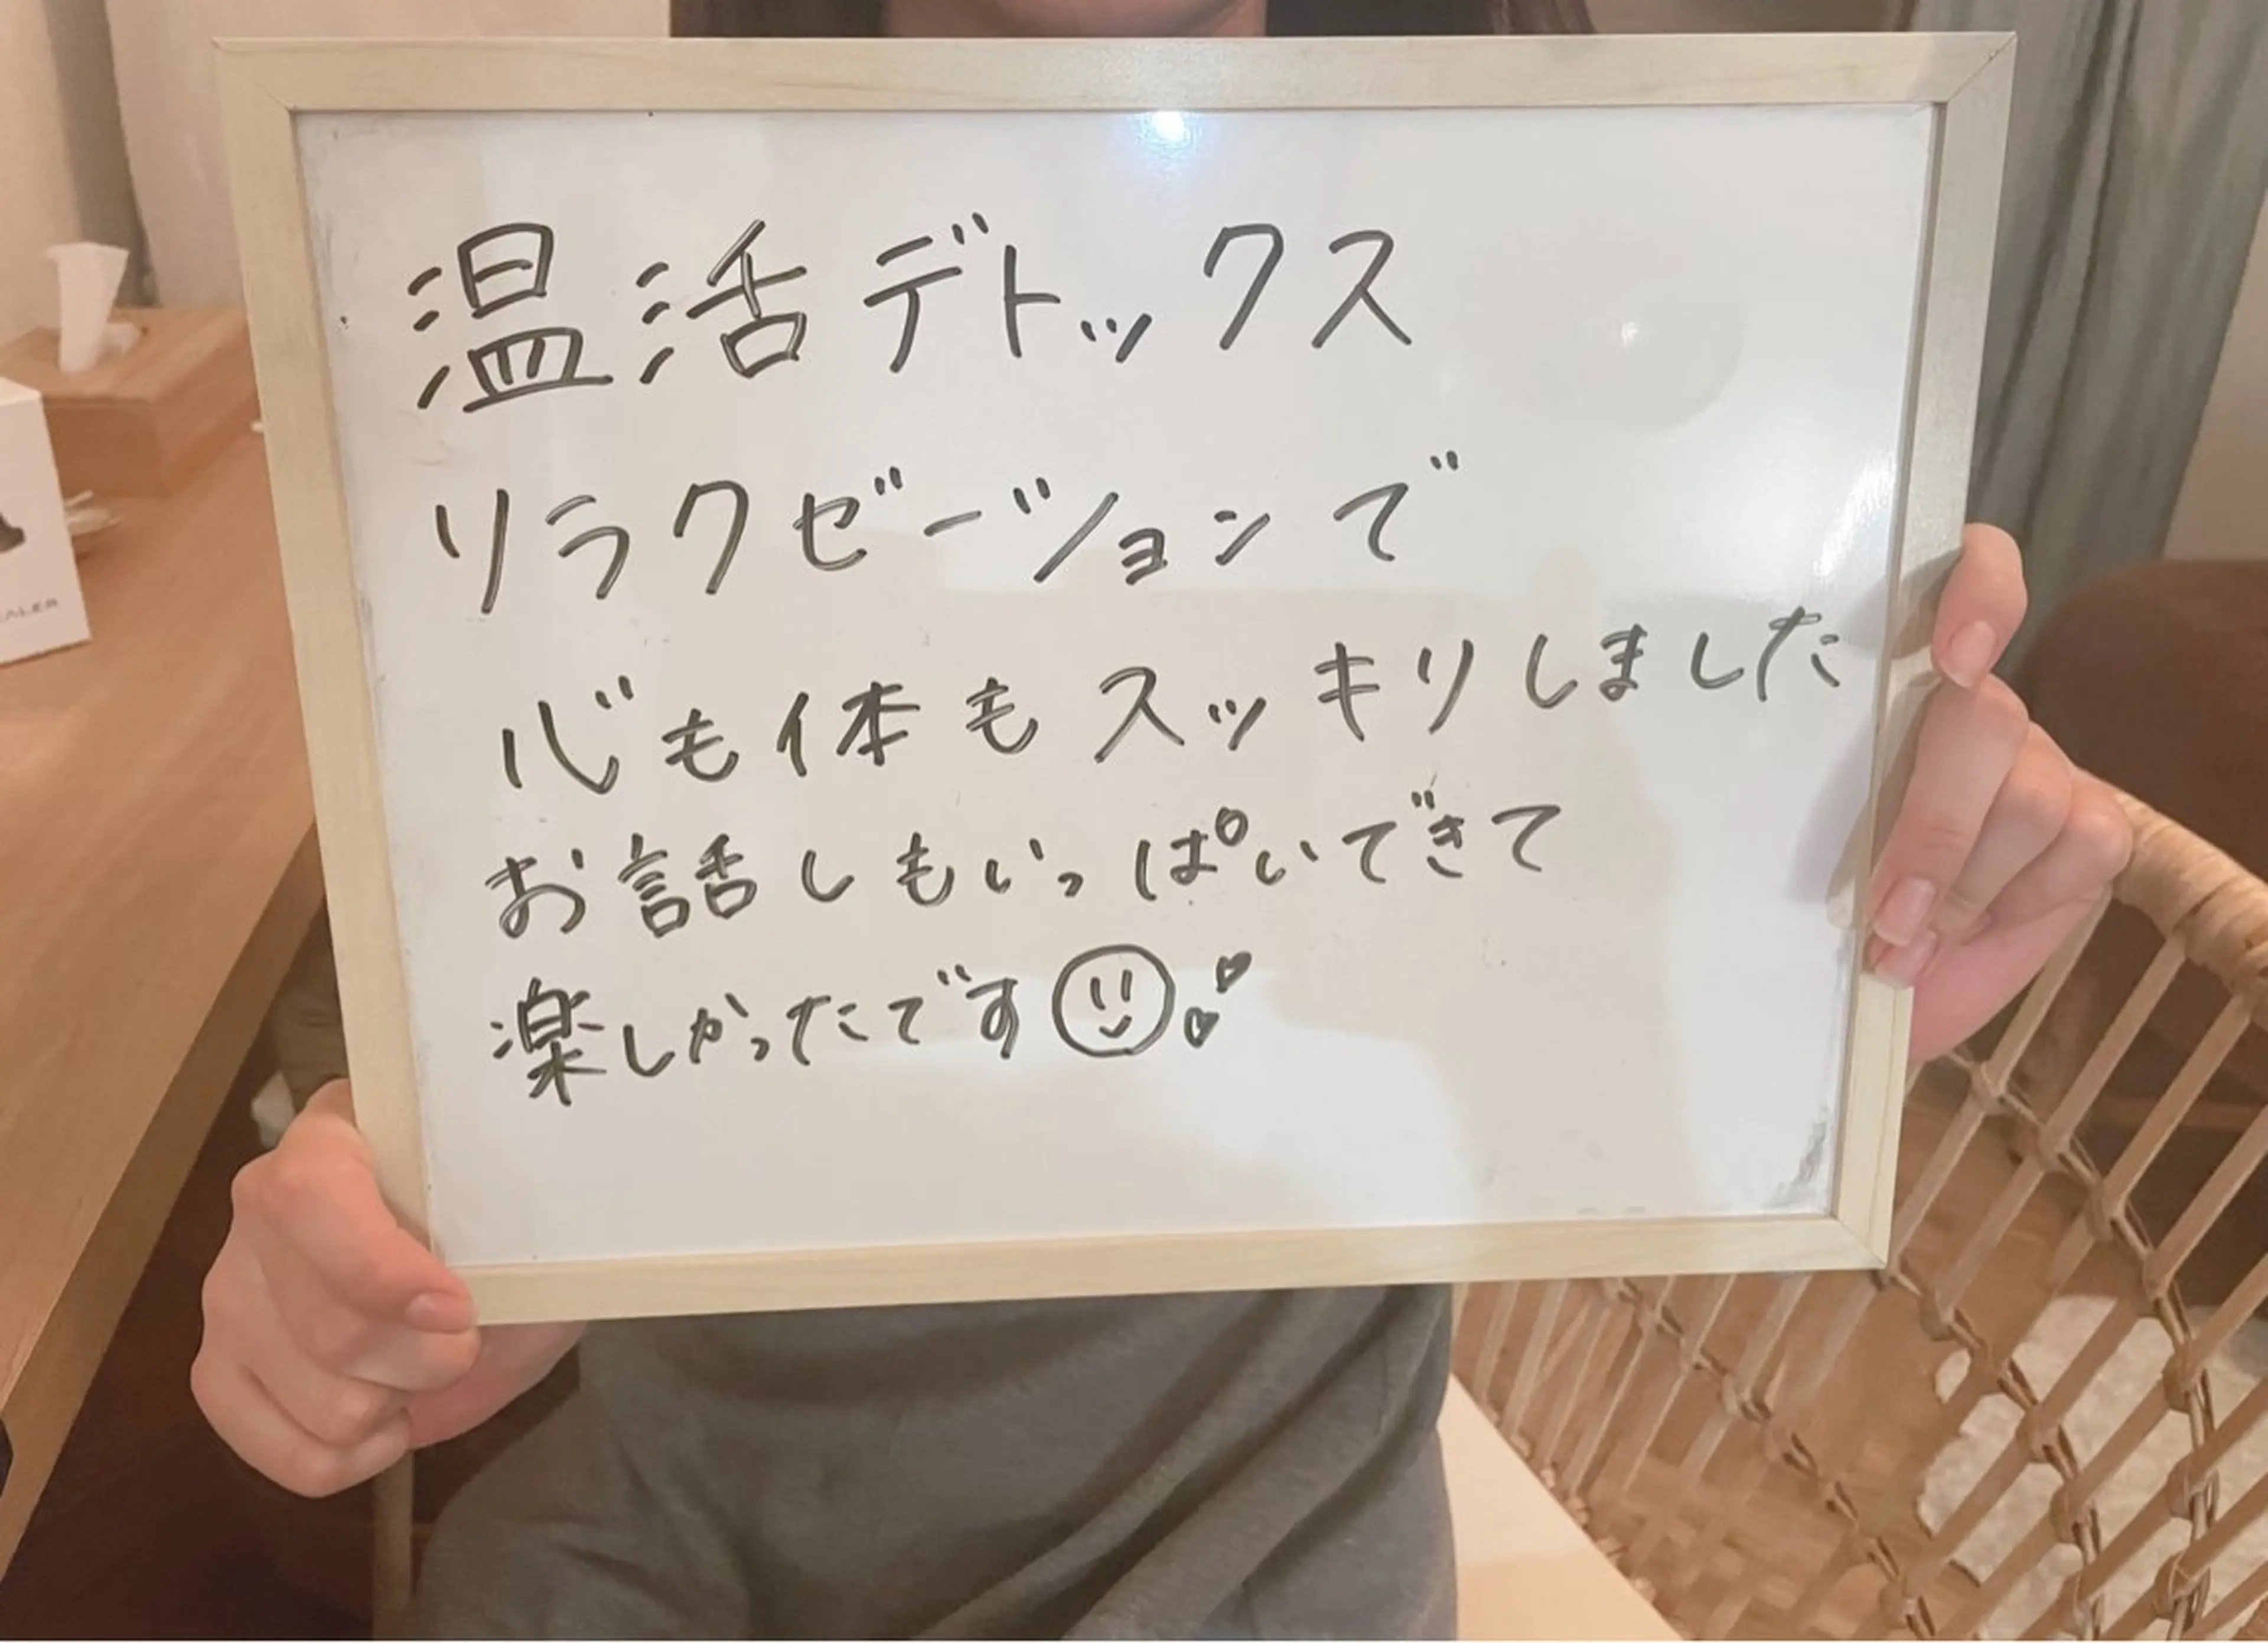 温活デトックス
リラクゼーションで
心も体もスッキリしました
お話しもいっぱいできて
楽しかったです